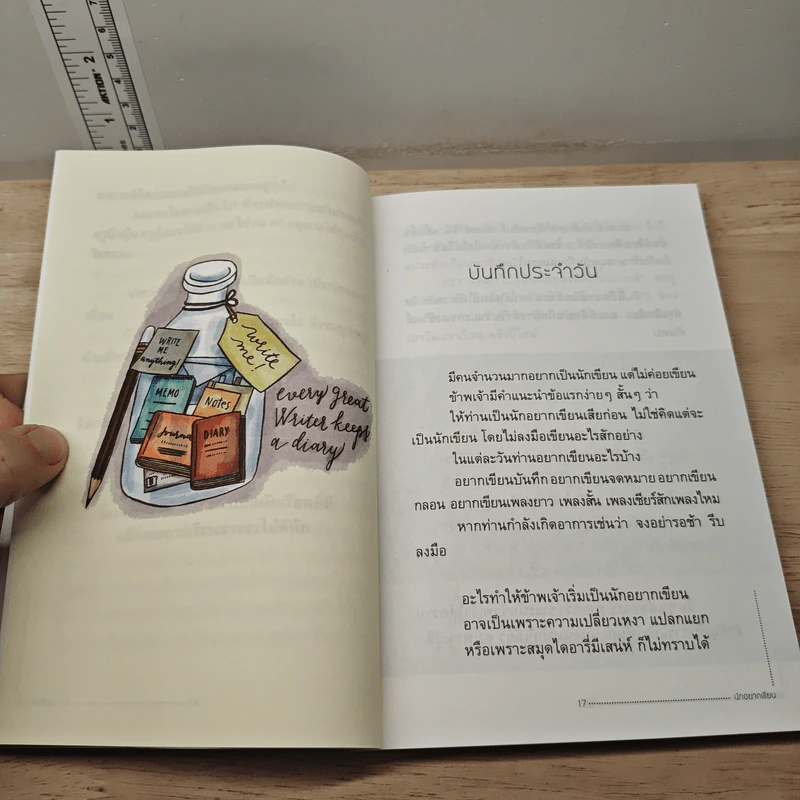 AKTION
WRITE
ME
anything!
write
me!
MEMO
Notes
Journal
DIARY
every great
Writer keeps
a diary
บันทึกประจำวัน
มีคนจำนวนมากอยากเป็นนักเขียน แต่ไม่ค่อยเขียน
ข้าพเจ้ามีคำแนะนำข้อแรกง่ายๆ สั้นๆ ว่า
ให้ท่านเป็นนักอยากเขียนเสียก่อน ไม่ใช่คิดแต่จะ
เป็นนักเขียน โดยไม่ลงมือเขียนอะไรสักอย่าง
ในแต่ละวันท่านอยากเขียนอะไรบ้าง
อยากเขียนบันทึก อยากเขียนจดหมาย อยากเขียน
กลอน อยากเขียนเพลงยาว เพลงสั้น เพลงเชียร์สักเพลงไหม
หากท่านกำลังเกิดอาการเช่นว่า จงอย่ารอช้า รีบ
ลงมือ
อะไรทำให้ข้าพเจ้าเริ่มเป็นนักอยากเขียน
อาจเป็นเพราะความเปลี่ยวเหงา แปลกแยก
หรือเพราะสมุดไดอารี่มีเสน่ห์ ก็ไม่ทราบได้
17 นักอยากเขียน